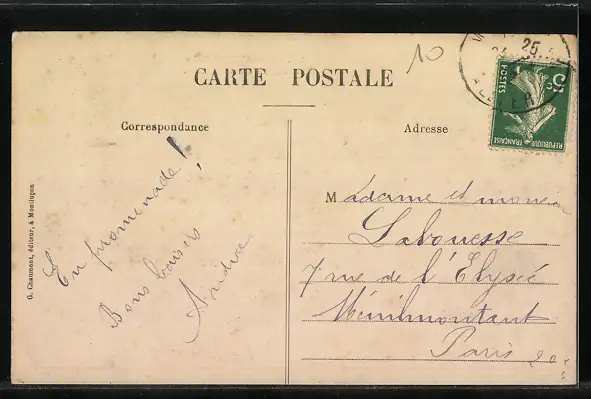 10
CARTE POSTALE
Correspondance
Adresse
En promenade!
Bons baisers
Andrée
Madame et monsieur
Labouesse
7 rue de l'Elysée
Ménilmontant
Paris 20e
G. Chaumont, éditeur, à Montluçon
25
5 c
POSTES
REPUBLIQUE FRANÇAISE